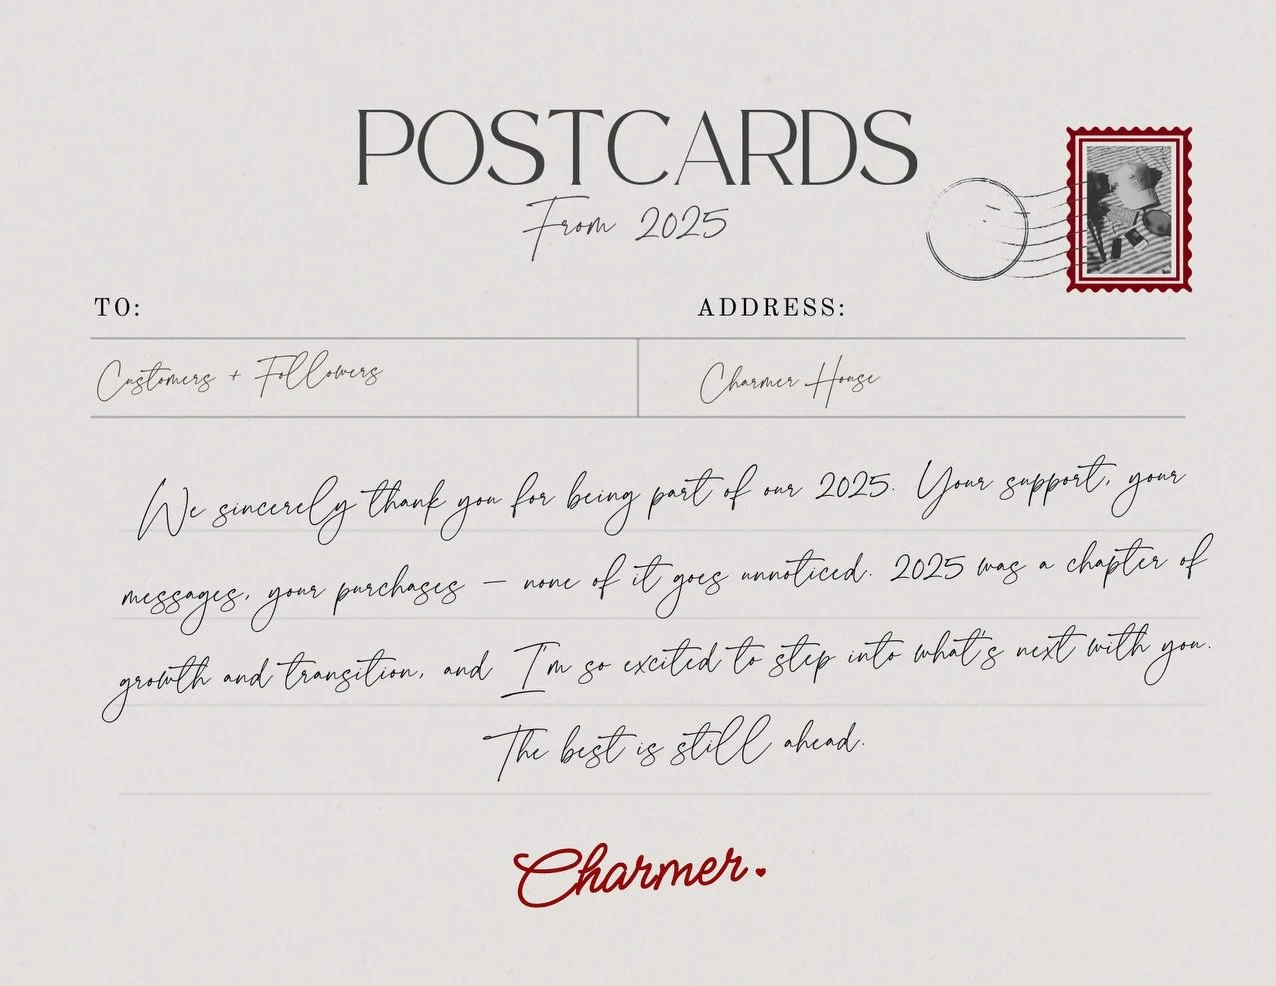 POSTCARDS
From 2025
TO:
ADDRESS:
Customers + Followers
Charmer House
We sincerely thank you for being part of our 2025. Your support, your
messages, your purchases — none of it goes unnoticed. 2025 was a chapter of
growth and transition, and I'm so excited to step into what's next with you.
The best is still ahead.
Charmer.